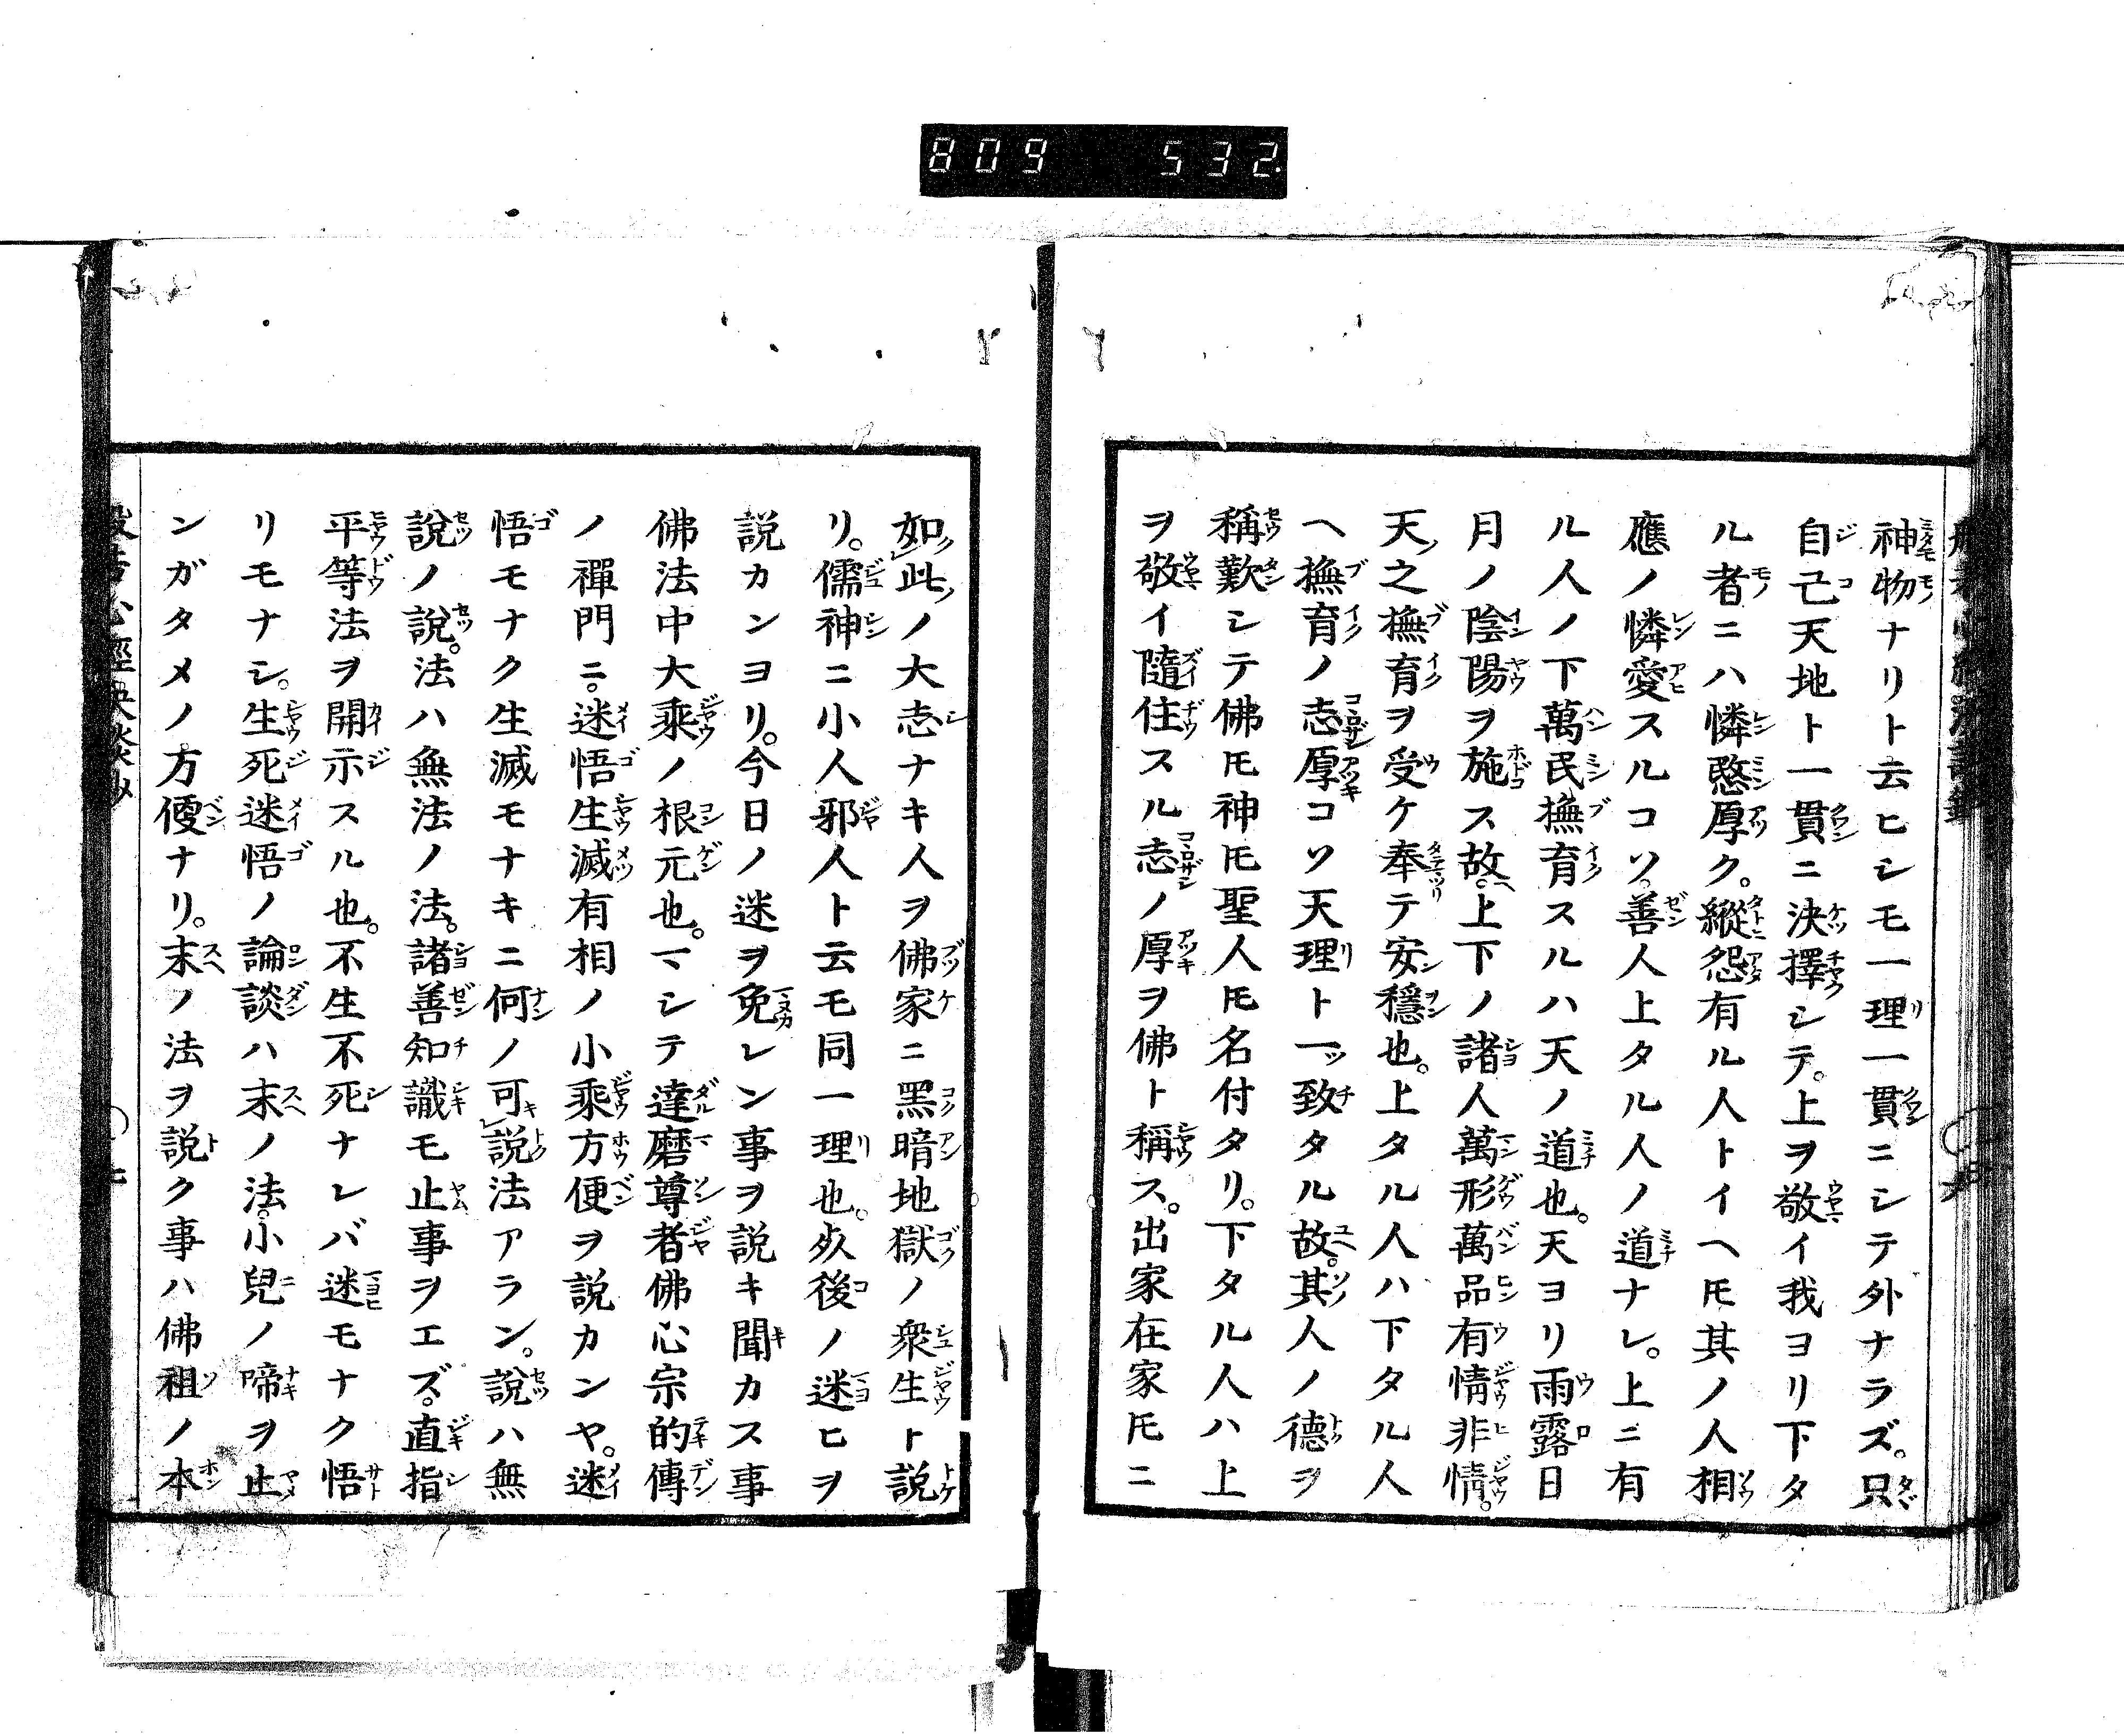 809 532
神物ナリト云ヒシモ一理一貫ニシテ外ナラズ。只
自己天地ト一貫ニ決擇シテ。上ヲ敬イ我ヨリ下タ
ル者ニハ憐愍厚ク。縱怨有ル人トイヘ𪜈其ノ人相
應ノ憐愛スルコソ。善人上タル人ノ道ナレ。上ニ有
ル人ノ下萬民撫育スルハ天ノ道也。天ヨリ雨露日
月ノ陰陽ヲ施ス故。上下ノ諸人萬形萬品有情非情。
天之撫育ヲ受ケ奉テ安穩也。上タル人ハ下タル人
ヘ撫育ノ志厚コソ天理ト一致タル故。其人ノ德ヲ
稱歎シテ佛𪜈神𪜈聖人𪜈名付タリ。下タル人ハ上
ヲ敬イ隨住スル志ノ厚ヲ佛ト稱ス。出家在家𪜈ニ
如此ノ大志ナキ人ヲ佛家ニ黑暗地獄ノ衆生ト説
リ。儒神ニ小人邪人ト云モ同一理也。歿後ノ迷ヒヲ
説カンヨリ。今日ノ迷ヲ免レン事ヲ説キ聞カス事
佛法中大乘ノ根元也。マシテ達磨尊者佛心宗的傳
ノ禪門ニ。迷悟生滅有相ノ小乘方便ヲ説カンヤ。迷
悟モナク生滅モナキニ何ノ可説法アラン。説ハ無
説ノ説。法ハ無法ノ法。諸善知識モ止事ヲエズ。直指
平等法ヲ開示スル也。不生不死ナレバ迷モナク悟
リモナシ。生死迷悟ノ論談ハ末ノ法。小兒ノ啼ヲ止
ンガタメノ方便ナリ。末ノ法ヲ説ク事ハ佛祖ノ本